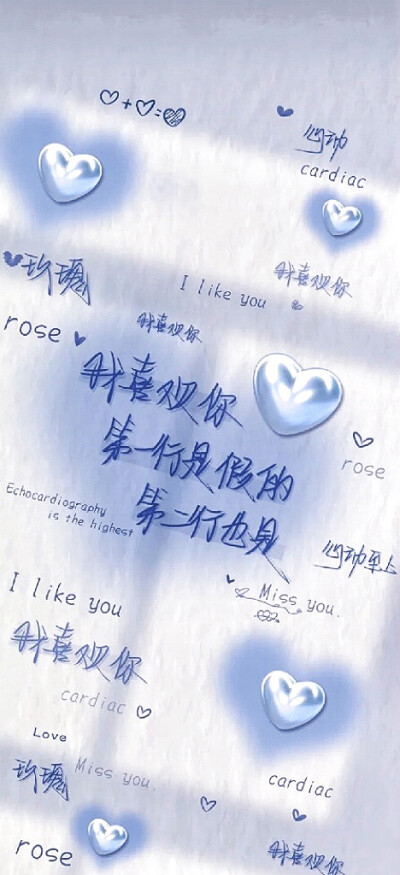 心动
cardiac
我喜欢你
玫瑰
I like you
rose
我喜欢你
我喜欢你
第一行是假的
第二行也是
rose
Echocardiography
is the highest
心动至上
Miss you.
I like you
我喜欢你
cardiac
Love
玫瑰
Miss you.
cardiac
rose
我喜欢你